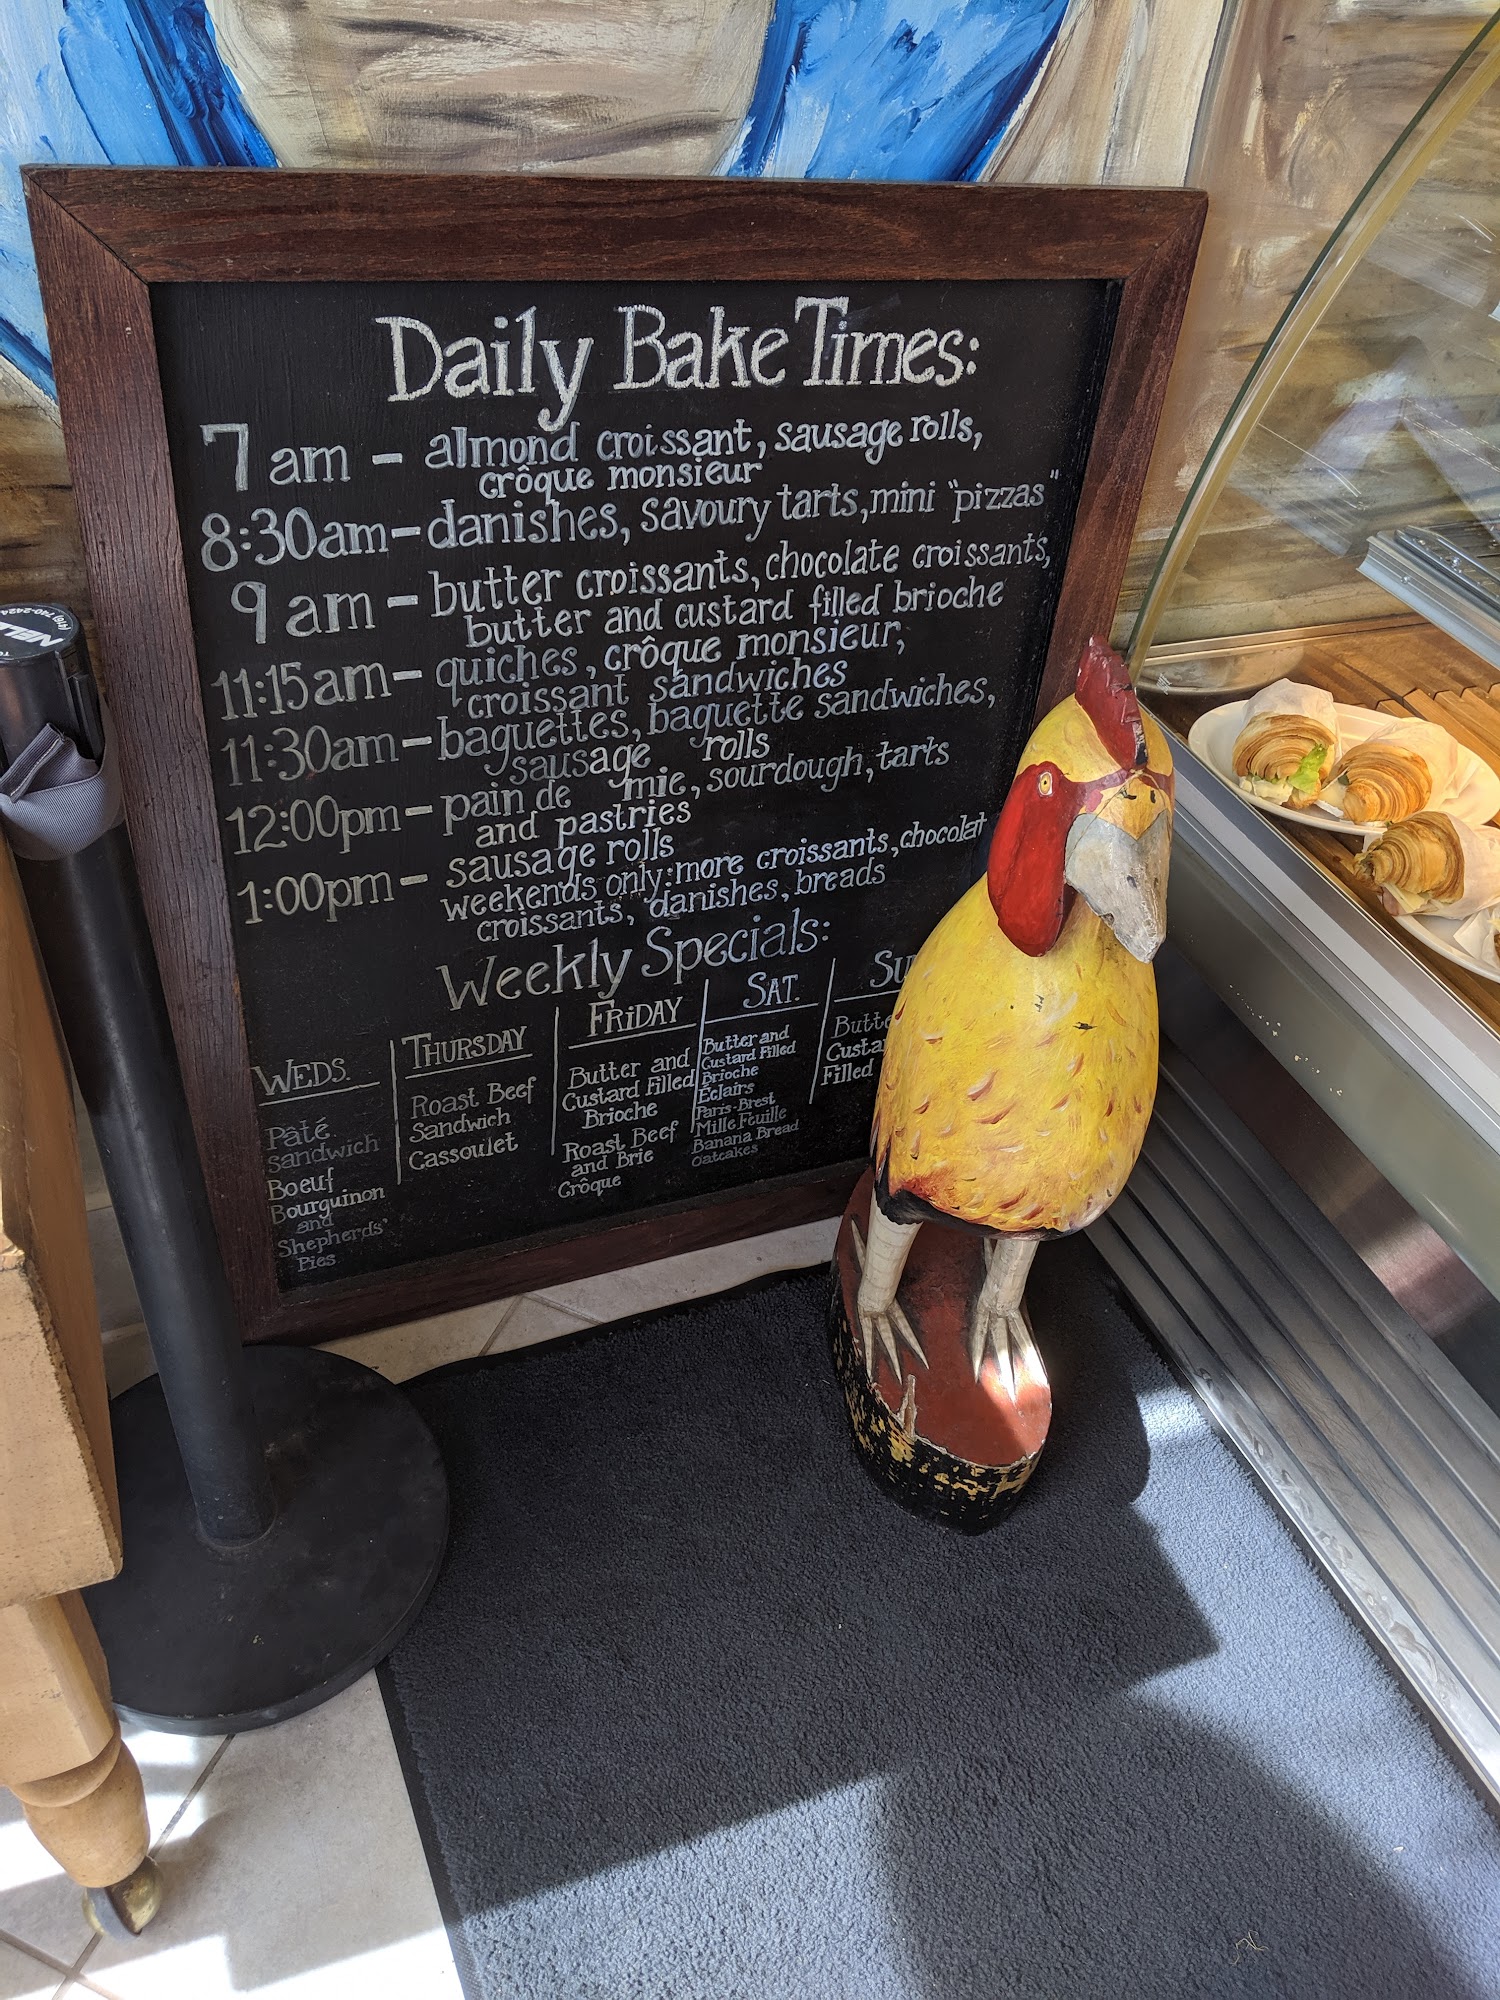 Daily Bake Times:
7am - almond croissant, sausage rolls,
crôque monsieur
8:30am - danishes, savoury tarts, mini "pizzas"
9am - butter croissants, chocolate croissants,
butter and custard filled brioche
11:15am - quiches, crôque monsieur,
croissant sandwiches
11:30am - baguettes, baguette sandwiches,
sausage rolls
12:00pm - pain de mie, sourdough, tarts
and pastries
1:00pm - sausage rolls
weekends only: more croissants, chocolat
croissants, danishes, breads
Weekly Specials:
WEDS.
Pâté
Sandwich
Boeuf
Bourguinon
and
Shepherds'
Pies
THURSDAY
Roast Beef
Sandwich
Cassoulet
FRIDAY
Butter and
Custard Filled
Brioche
Roast Beef
and Brie
Crôque
SAT.
Butter and
Custard Filled
Brioche
Éclairs
Paris-Brest
Mille Feuille
Banana Bread
Oatcakes
SU
Butte
Custa
Filled
(416) 740-2424